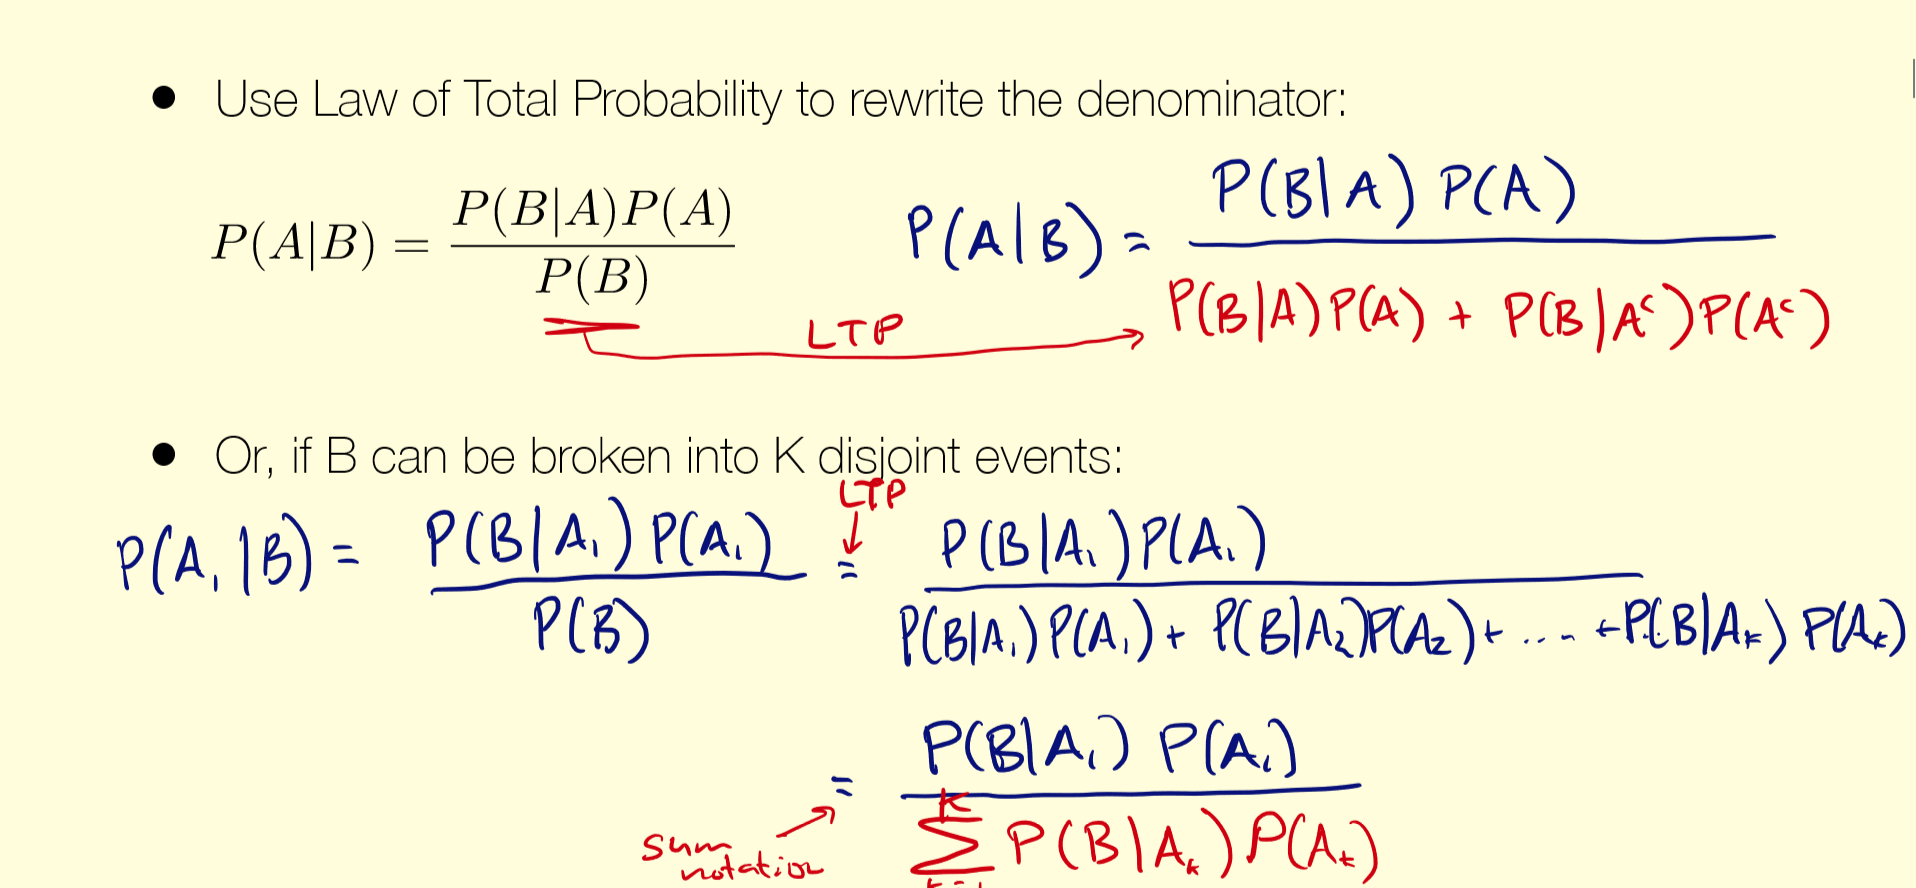 ● Use Law of Total Probability to rewrite the denominator:
P(A|B) = P(B|A)P(A) / P(B)
LTP
P(A|B) = P(B|A) P(A) / P(B|A)P(A) + P(B|Aᶜ)P(Aᶜ)
● Or, if B can be broken into K disjoint events:
LTP
P(A₁|B) = P(B|A₁) P(A₁) / P(B) = P(B|A₁)P(A₁) / P(B|A₁)P(A₁) + P(B|A₂)P(A₂) + .... + P(B|Aₖ) P(Aₖ)
= P(B|A₁) P(A₁) / K ∑ P(B|Aₖ) P(Aₖ)
sum
notation